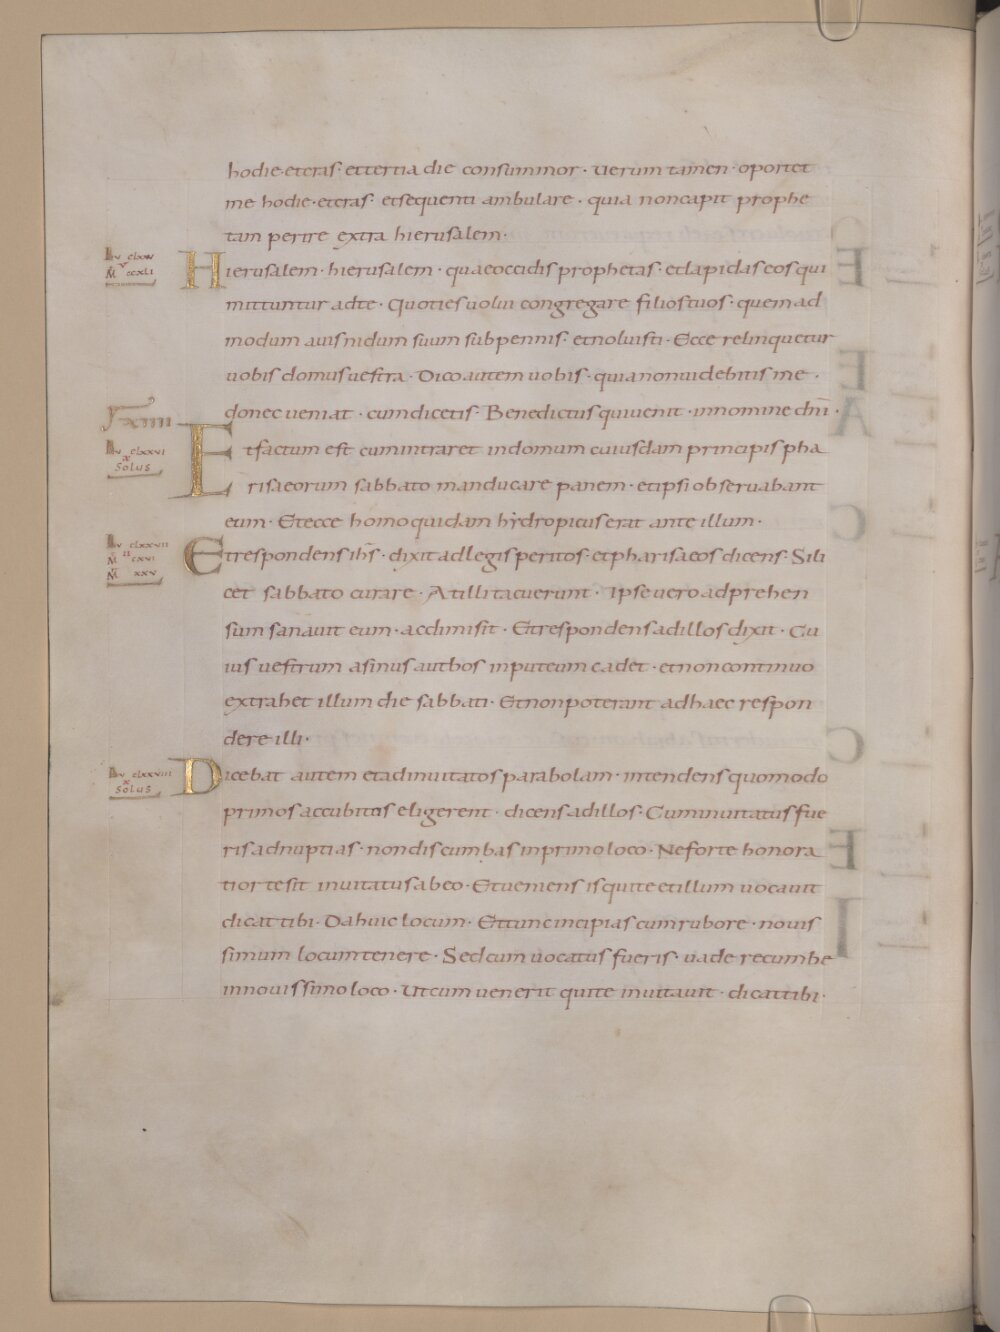 hodie · et cras · et tertia die consummor · Uerum tamen · oportet
me hodie · et cras · et sequenti ambulare · quia non capit prophe
tam perire extra hierusalem ·
Lu clxxv
M ccxli
Hierusalem · hierusalem · quae occidis prophetas · et lapidas eos qui
mittuntur ad te · Quoties uolui congregare filios tuos · quem ad
modum auis nidum suum sub pennis · et noluisti · Ecce relinquetur
uobis domus uestra · Dico autem uobis · quia non uidebitis me ·
donec ueniat · cum dicetis · Benedictus qui uenit · in nomine dni ·
Lu clxxvi
x
Solus
Et factum est cum intraret in domum cuiusdam principis pha
risaeorum sabbato manducare panem · et ipsi obseruabant
eum · Et ecce homo quidam hydropicus erat ante illum ·
Lu clxxvii
M cxvi
M xxv
Et respondens ihs · dixit ad legis peritos · et pharisaeos dicens · Si li
cet sabbato curare · At illi tacuerunt · Ipse uero adprehen
sum sanauit eum · ac dimisit · Et respondens ad illos dixit · Cu
ius uestrum asinus aut bos in puteum cadet · et non continuo
extrahet illum die sabbati · Et non poterant ad haec respon
dere illi ·
Lu clxxviii
x
Solus
Dicebat autem et ad inuitatos parabolam · intendens quomodo
primos accubitus eligerent · dicens ad illos · Cum inuitatus fue
ris ad nuptias · non discumbas in primo loco · Ne forte honora
tior te sit inuitatus ab eo · Et ueniens is qui te et illum uocauit
dicat tibi · Da huic locum · Et tunc incipias cum rubore · nouis
simum locum tenere · Sed cum uocatus fueris · uade recumbe
in nouissimo loco · Ut cum uenerit qui te inuitauit · dicat tibi ·